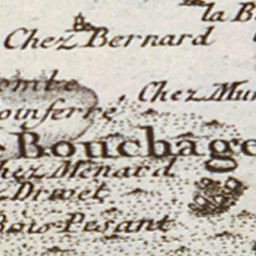 la B
Chez Bernard
omte
Chez Mun
oinferré
Bouchage
hez Menard
Drivet
Bois Pesant